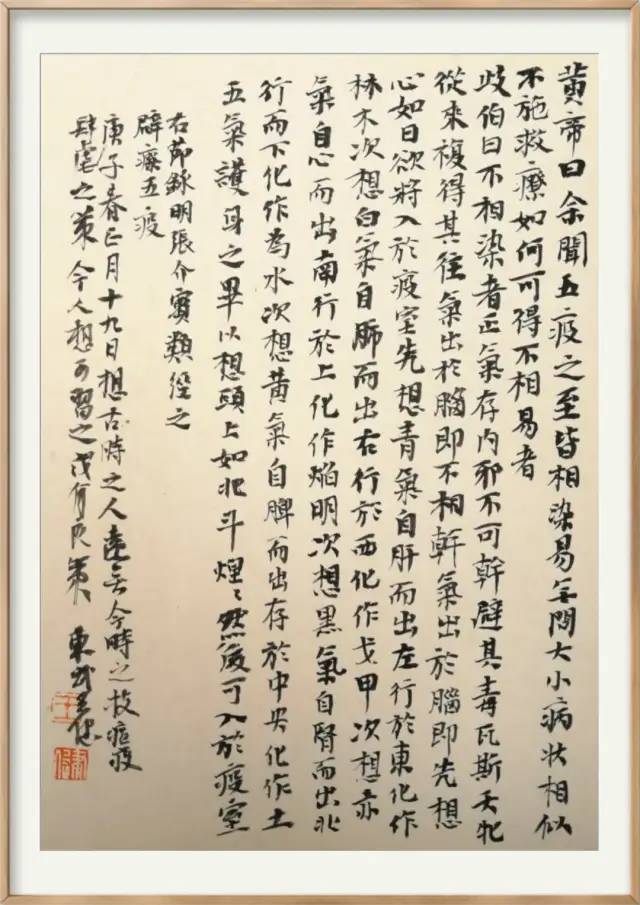 黄帝曰余聞五疫之至皆相染易無問大小病状相似
不施救療如何可得不相易者
歧伯曰不相染者正氣存内邪不可幹避其毒瓦斯天牝
從来複得其往氣出於腦即不相幹氣出於腦即先想
心如日欲將入於疫室先想青氣自肝而出左行於東化作
林木次想白氣自肺而出右行於西化作戈甲次想赤
氣自心而出南行於上化作焰明次想黑氣自腎而出北
行而下化作為水次想黄氣自脾而出存於中央化作土
五氣護身之畢以想頭上如北斗煌〻然後可入於疫室
右節録明張介賓類經之
辟療五疫
庚子春正月十九日想古時之人遠無今時之技瘟疫
肆虐之策今人想可習之或有良策 東武